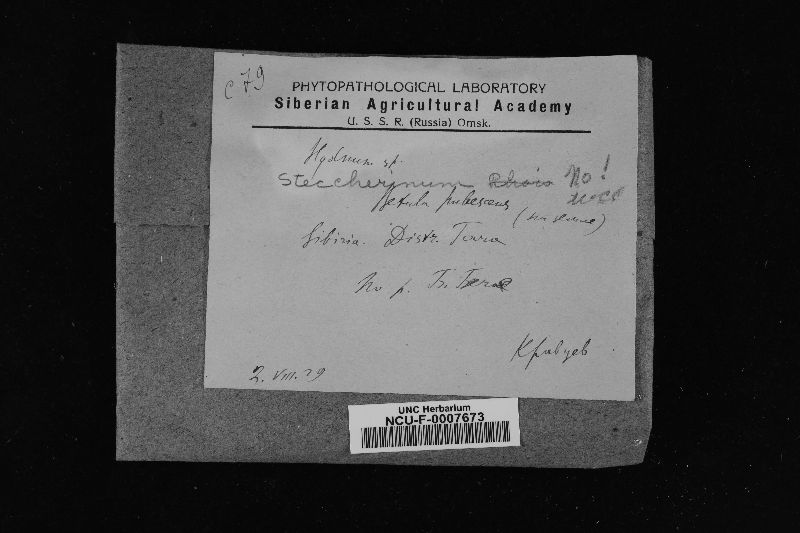 c 79
PHYTOPATHOLOGICAL LABORATORY
Siberian Agricultural Academy
U. S. S. R. (Russia) Omsk.
Hydnum sp.
Steccherinum Rhois No!
Betula pubescens
Sibiria. Distr. Tara
По р.
Кравцев
2. VIII. 29
UNC Herbarium
NCU-F-0007673